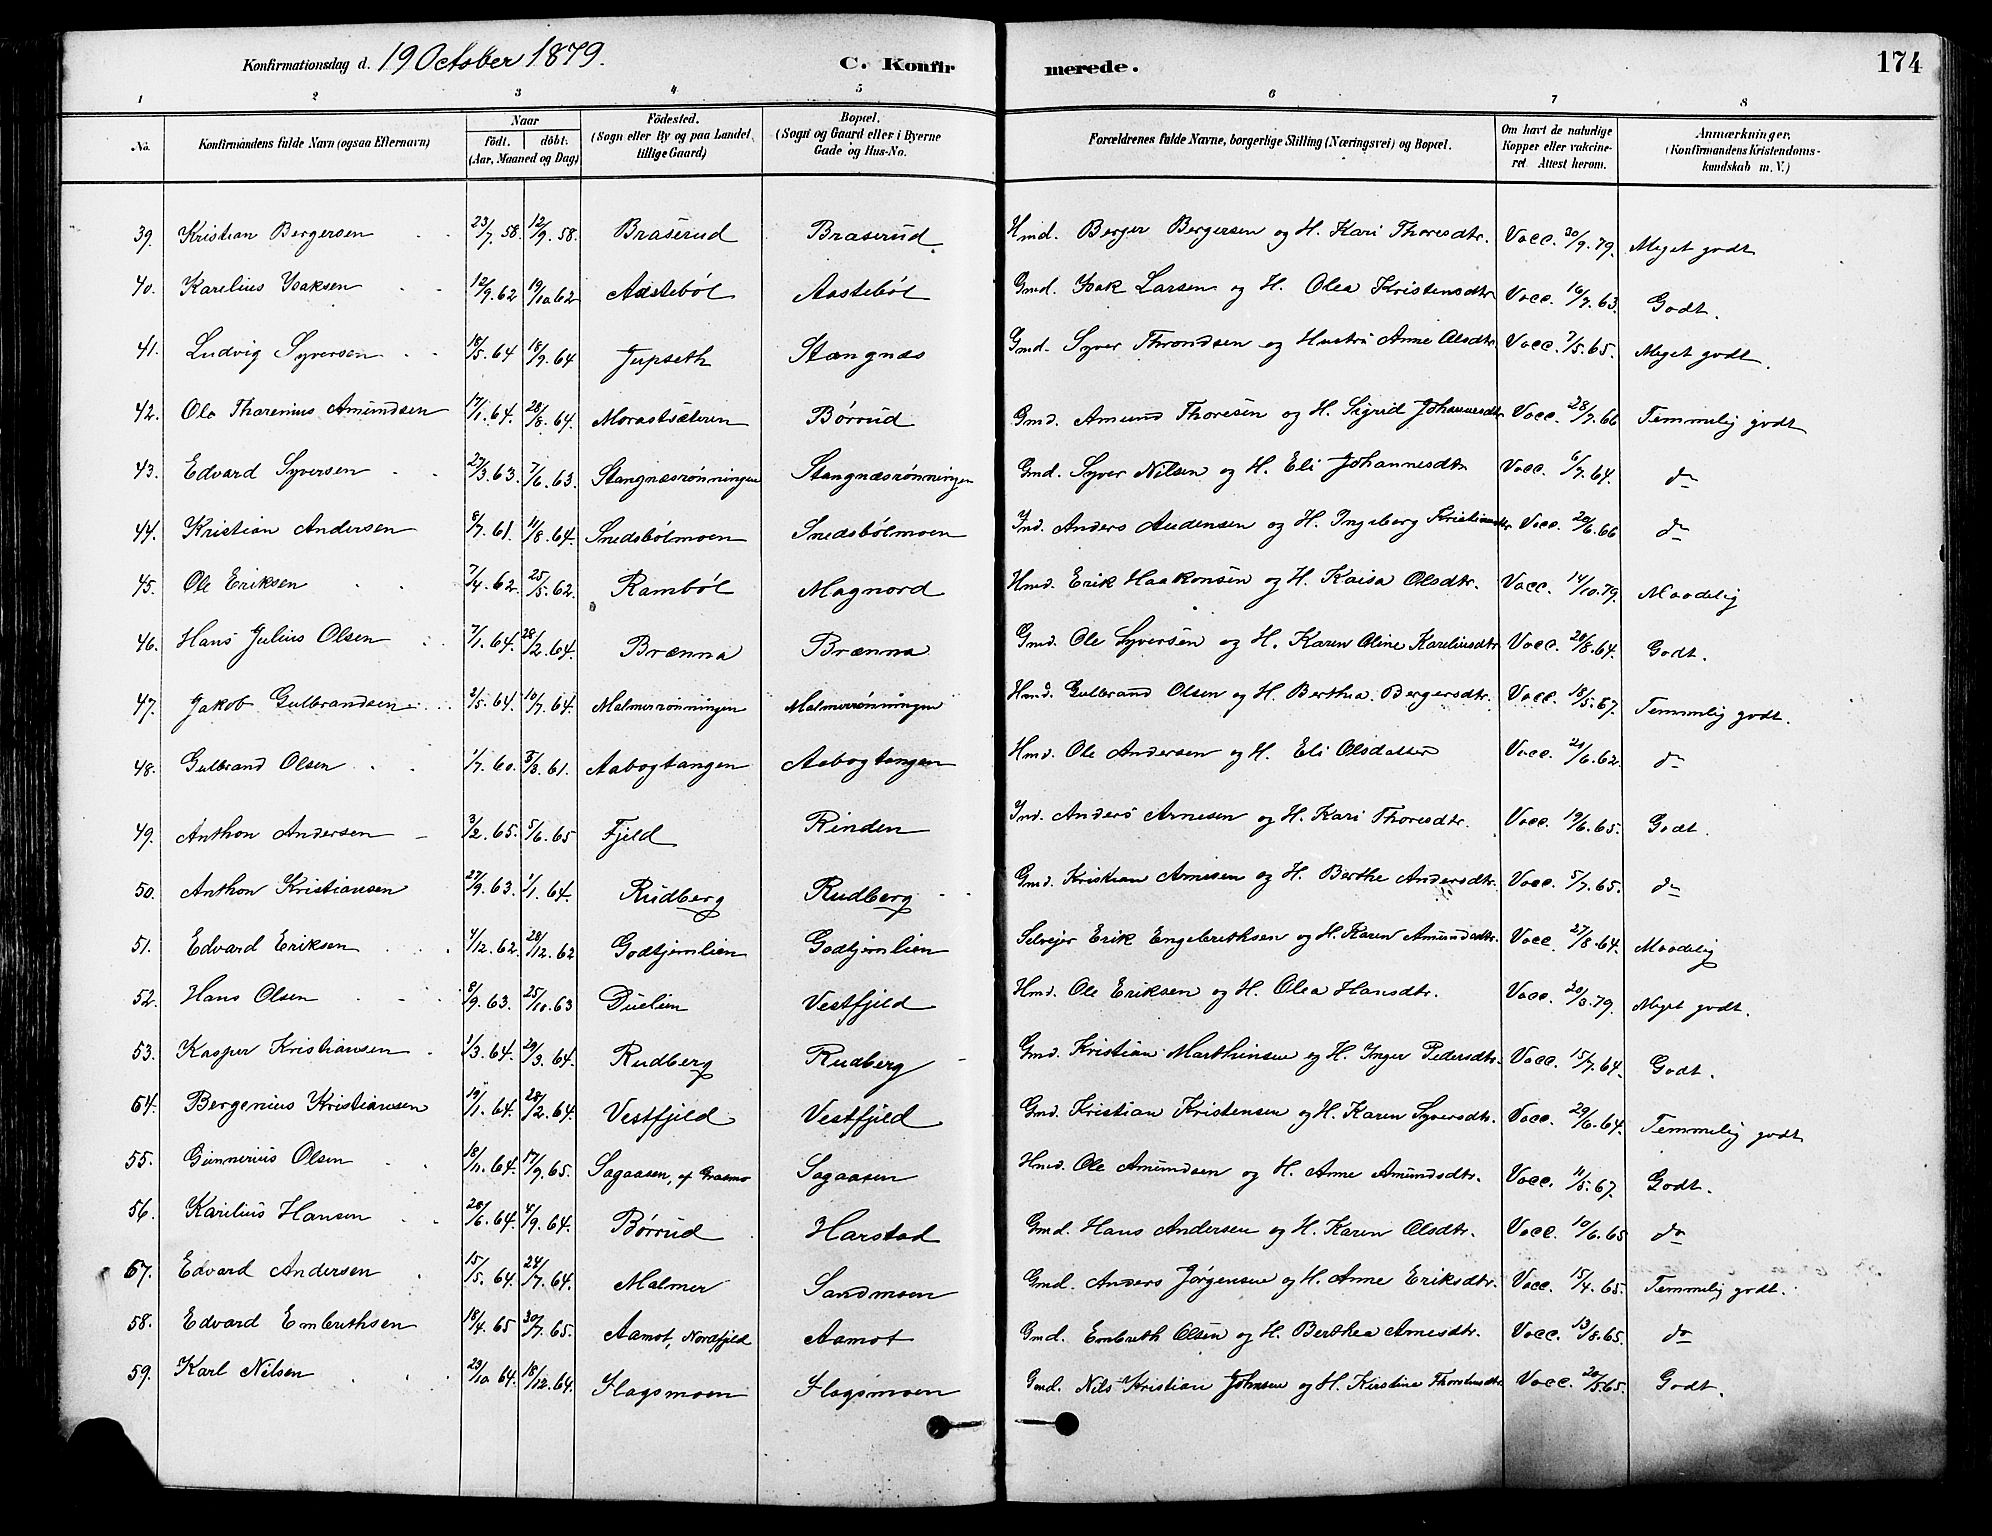 Konfirmationsdag d. 19 October 1879. C. Konfirmerede. 174
1 2 3 4 5 6 7 8
No. Konfirmandens fulde Navn (ogsaa Efternavn) Naar födt. döbt. (Aar, Maaned og Dag) Födested. (Sogn eller By og paa Landet tillige Gaard) Bopæl. (Sogn og Gaard eller i Byerne Gade og Hus-No. Forældrenes fulde Navne, borgerlige Stilling (Næringsvei) og Bopæl. Om havt de naturlige Kopper eller vakcineret Attest herom. Anmærkninger. (Konfirmandens Kristendomskundskab m. V.)
39. Kristian Bergersen 23/7. 58. 12/9. 58. Braserud Braserud Hmd. Berger Bergersen og H. Kari Thoresdtr. Vacc. 30/9. 79. Meget godt
40. Karelius Isaksen 12/9. 62 19/10 62 Aastebøl Aastebøl Gmd. Isak Larsen og H. Olea Kristensdtr Vacc. 16/7. 63. Godt.
41. Ludvig Syversen 18/5. 64 18/9. 64 Jupseth Stangnæs Gmd. Syver Throndsen og Hustru Anne Olsdtr Vacc. 7/5. 65. Meget godt.
42. Ole Tharenius Amundsen 17/1. 64. 28/8. 64. Morastsæteren Børrud Gmd. Amund Thoresen og H. Sigrid Johannesdtr Vacc. 28/7. 66 Temmelig godt
43. Edvard Syversen 27/3. 63. 7/6. 63. Stangnæsrønningen Stangnæsrønningen Gmd. Syver Nilsen og H. Eli Johannesdtr Vacc. 6/7. 64. do
44. Kristian Andersen 8/7. 61. 11/8. 64. Snedsbølmoen Snedsbølmoen Ind. Anders Audensen og H. Ingeborg Kristiansdtr Vacc. 20/6. 66 do
45. Ole Eriksen 7/4. 62. 25/5. 62. Rambøl Magnord Hmd. Erik Haakonsen og H. Kaisa Olsdtr. Vacc. 14/10. 79. Maadelig
46. Hans Julius Olsen 7/1. 64. 28/2. 64. Brænna Brænna Gmd. Ole Syversen og H. Karen Oline Kareliusdtr Vacc. 20/8. 64. Godt.
47. Jakob Gulbrandsen 3/5. 64. 10/7. 64. Malmerrønningen Malmerrønningen Hmd. Gulbrand Olsen og H. Berthea Bergersdtr. Vacc. 18/5. 67. Temmelig godt.
48. Gulbrand Olsen 1/7. 60. 3/3. 61. Aabogtangen Aabogtangen Hmd. Ole Andersen og H. Eli Olsdatter Vacc. 21/6. 62. do
49. Anthon Andersen 3/2. 65. 5/6. 65 Fjeld Rinden Ind. Anders Arnesen og H. Kari Thoresdtr. Vacc. 19/6. 65. Godt.
50. Anthon Kristiansen 27/9. 63. 1/1. 64. Rudberg Rudberg Gmd. Kristian Arnesen og H. Berthe Andersdtr. Vacc. 5/7. 65. do
51. Edvard Eriksen 4/12. 62. 28/12. 62 Godtjernlien Godtjernlien Selvejer Erik Engebrethsen og H. Karen Amundsdtr. Vacc. 27/8. 64. Maadelig
52. Hans Olsen 8/9. 63. 25/10. 63 Duelien Vestfjeld Hmd. Ole Eriksen og H. Olea Hansdtr. Vacc. 20/3. 79. Meget godt.
53. Kasper Kristiansen 1/3. 64. 29/3. 64. Rudberg Rudberg Gmd. Kristian Marthinsen og H. Inger Pedersdtr. Vacc. 15/7. 64. Godt.
54. Bergenius Kristiansen 19/1. 64. 28/2. 64. Vestfjeld Vestfjeld Gmd. Kristian Kristensen og H. Karen Syversdtr. Vacc. 29/6. 64. Temmelig godt
55. Gunnerius Olsen 18/11. 64. 17/9. 65. Sagaasen, af Grasmo Sagaasen Hmd. Ole Amundsen og H. Anne Amundsdtr. Vacc. 11/5. 67. Godt.
56. Karilius Hansen 28/6. 64. 4/9. 64. Børrud Harstad Gmd. Hans Andersen og H. Karen Olsdtr. Vacc. 10/6. 65 do
57. Edvard Andersen 15/5. 64. 24/7. 64. Malmer Sandmoen Gmd. Anders Jørgensen og H. Anne Eriksdtr. Vacc. 15/4. 65. Temmelig godt.
58. Edvard Embrethsen 18/4. 65 30/7. 65. Aamot, Nordfjeld Aamot Gmd. Embreth Olsen og H. Berthea Arnesdtr. Vacc. 13/8. 65. do
59. Karl Nilsen 23/10 64. 18/12. 64. Flagsmoen Flagsmoen Gmd. Nils Kristian Johnsen og H. Kirstine Thorstensdtr Vacc. 20/5. 65. Godt.